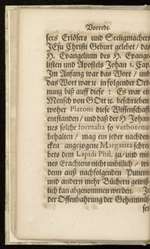 Vorrede.
sers Erlösers und Seeligmachers
JEsu Christi Geburt gelebet / das
H. Evangelium des H. Evange-
listen und Apostels Johan 1. Cap.
Im Anfang war das Wort / und
das Wort war ꝛc. in folgender Ord-
nung biß auff diese : Es war ein
Mensch von GOtt ꝛc. beschrieben
woher Platoni diese Wissenschafft
enstanden / und daß der H. Johan-
nes solche formalia &
behalten / mag ein jeder nachden-
cken angezogene Margarita
bers dem Lapidi Phil. zu / und mei-
nes Erachtens nicht
dem auß nachfolgenden Puncten
und andern mehr Büchern genug-
sam kan abgenommen werden.
der Offenbahrung der Geheimnis-